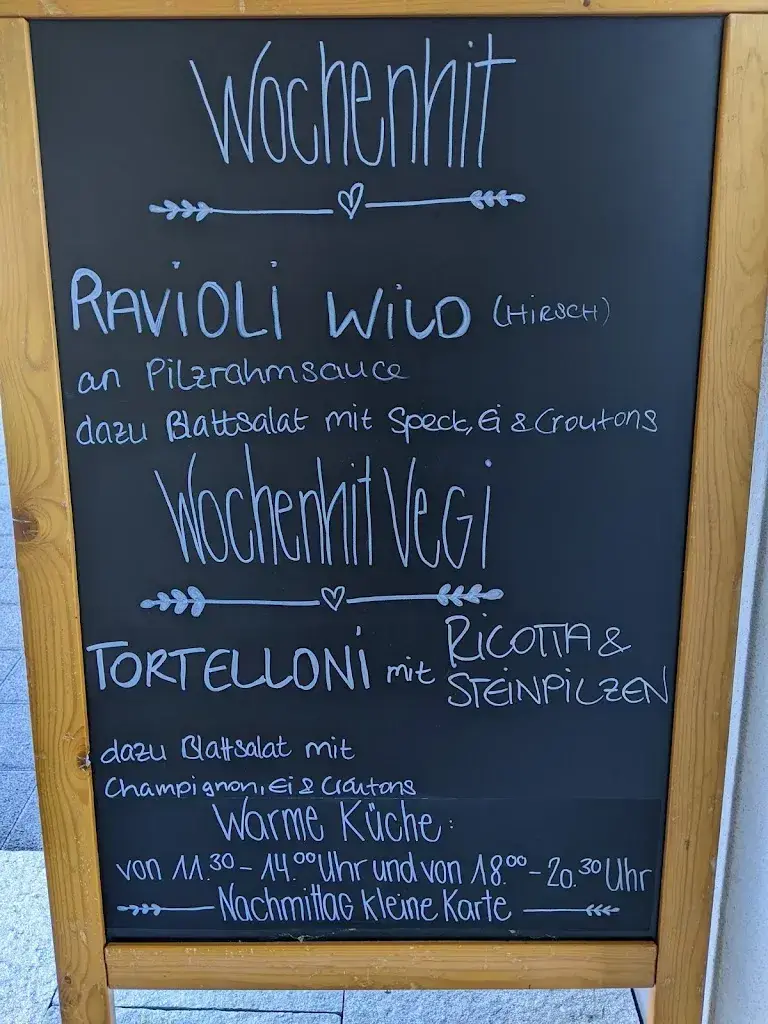 Wochenhit
RAVIOLI WILD (HIRSCH)
an Pilzrahmsauce
dazu Blattsalat mit Speck, Ei & Croutons
Wochenhit VEGI
TORTELLONI mit RICOTTA & STEINPILZEN
dazu Blattsalat mit
Champignon, Ei & Croutons
Warme Küche:
von 11.30 - 14.00 Uhr und von 18.00 - 20.30 Uhr
Nachmittag kleine Karte